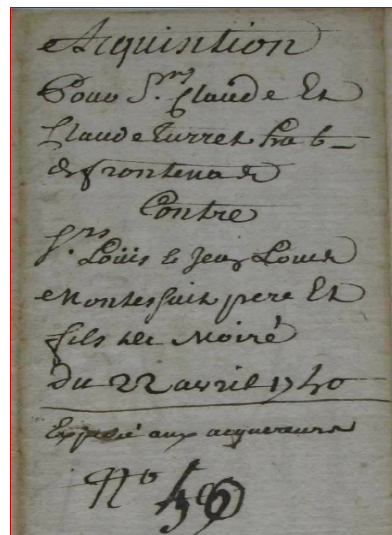 Acquisition
Pour S.rs Claude Et
Claude Turret hab-
de frontenas
Contre
S.rs Loüis & Jean Louis
Montessuit pere Et
fils de Moiré
du 22 avril 1740
Expedié aux acquereurs
No